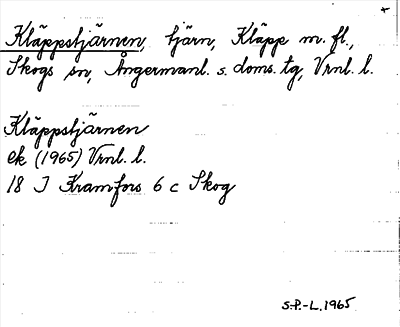 Kläppstjärnen, tjärn, Kläpp m. fl.,
Skogs sn, Ångermanl. s. doms. tg, Vrnl. l.
Kläppstjärnen
ek (1965) Vrnl. l.
18 I Kramfors 6 c Skog
S.P.-L. 1965